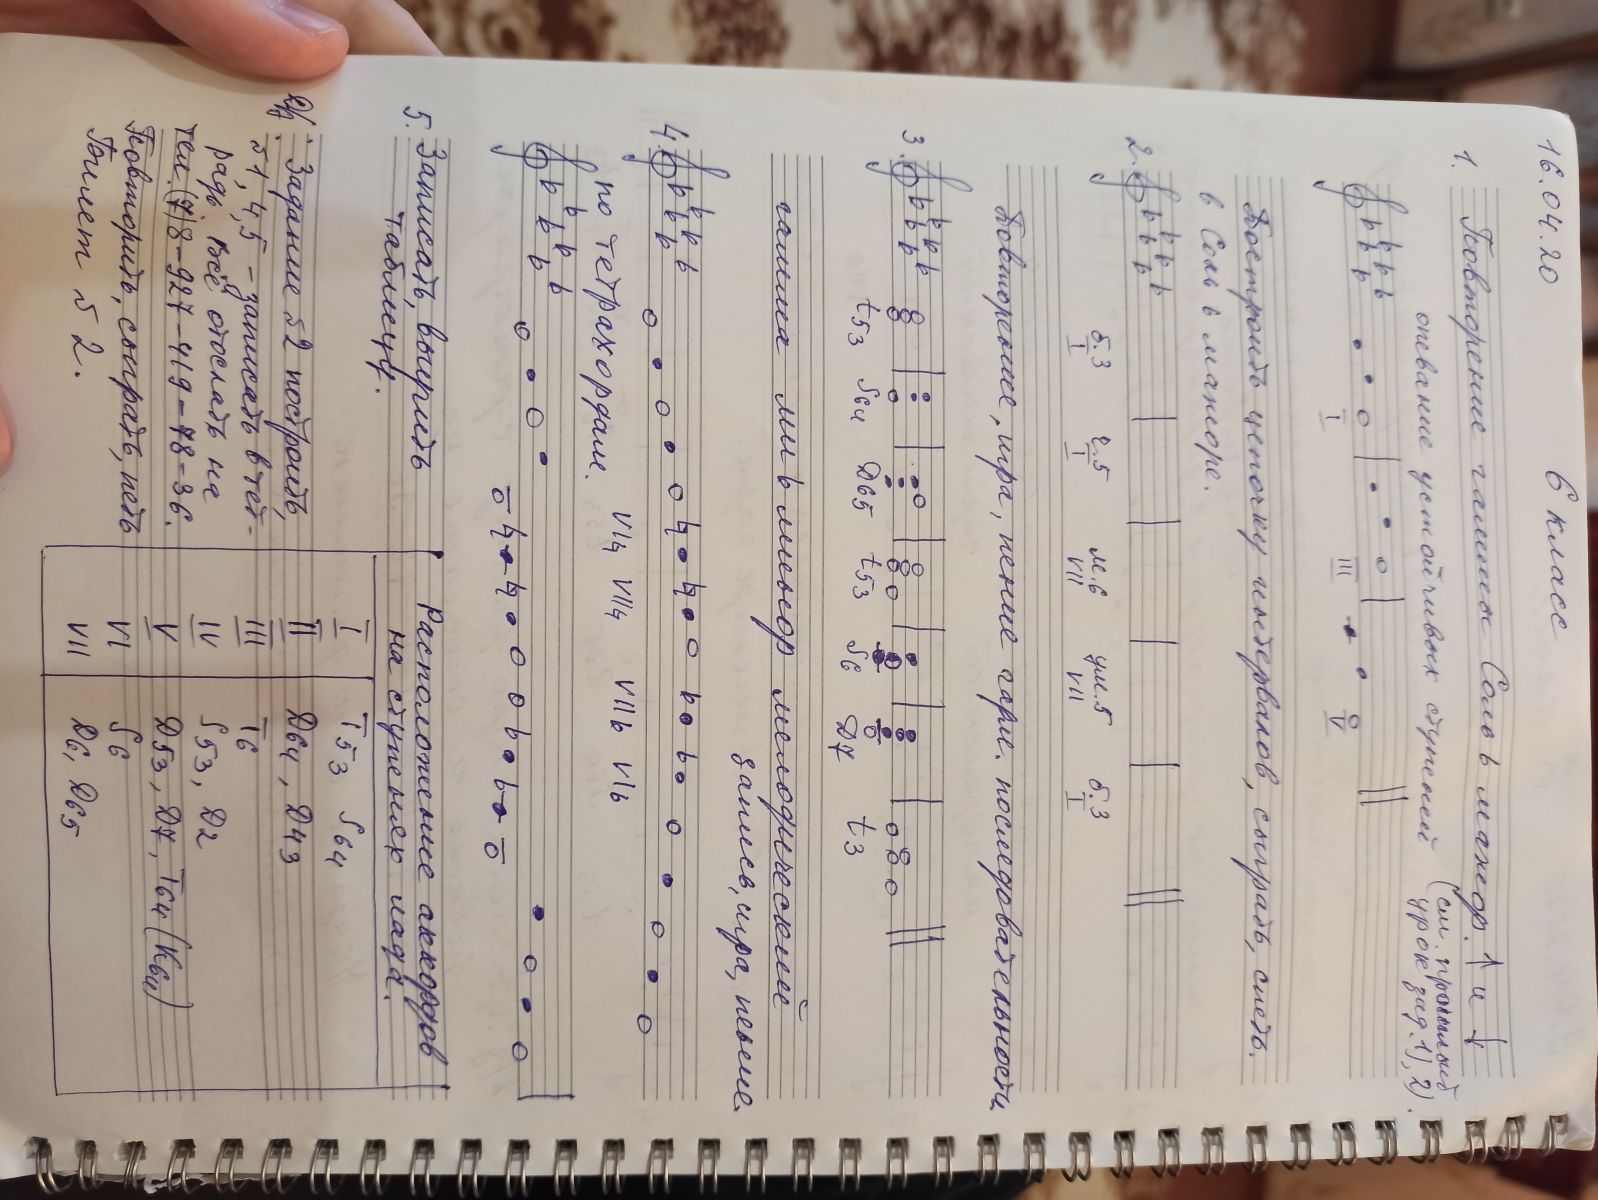 16.04.20 6 класс
1. Повторение гаммы Соль b мажор. ↑ и ↓
опевание устойчивых ступеней (см. прошлый
урок зад. 1), 2).
I III V
Построить цепочку интервалов, сыграть, спеть.
в Соль b мажоре.
2.
б.3 ч.5 м.6 ум.5 б.3
I I VII VII I
Повторение, игра, пение гарм. последовательности
3.
t53 S64 D65 t53 S6 D7 t3
гамма ми b минор мелодический
запись, игра, пение
4.
по тетрахордам. VI♮ VII♮ VIIb VIb
5. Записать, выучить
таблицу.
Расположение аккордов
на ступенях лада.
I T53 S64
II D64, D43
III T6
IV S53, D2
V D53, D7, T64 (K64)
VI S6
VII D6, D65
Д/з. Задание №2 построить,
№1, 4, 5 – записать в тет-
радь. Всё отослать на
тел. (7)8-927-419-78-36.
Повторить, сыграть, петь
Билет №2.